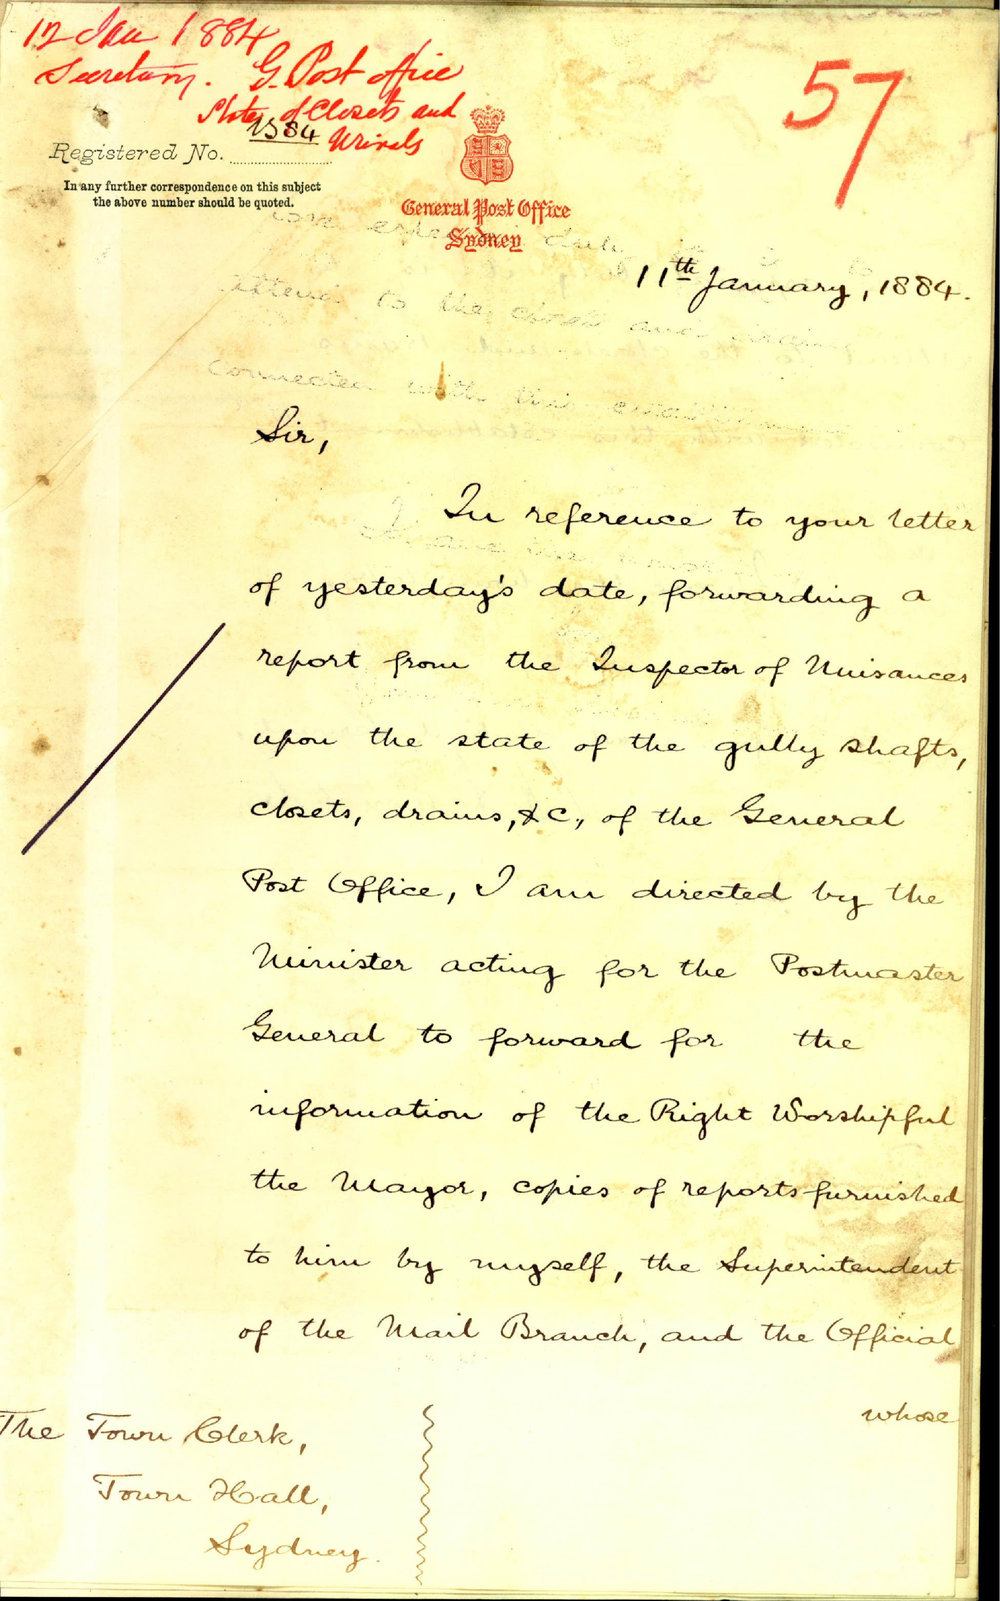 12 Jan 1884
Secretary. G. Post office
State of Closets and
Urinals
1884
57
Registered No.
In any further correspondence on this subject
the above number should be quoted.
General Post Office
Sydney
11th January, 1884.
attend to the closets and
connected with this
Sir,
In reference to your letter
of yesterday's date, forwarding a
report from the Inspector of Nuisances
upon the state of the gully shafts,
closets, drains, &c., of the General
Post Office, I am directed by the
Minister acting for the Postmaster
General to forward for the
information of the Right Worshipful
the Mayor, copies of reports furnished
to him by myself, the Superintendent
of the Mail Branch, and the Official
whose
The Town Clerk,
Town Hall,
Sydney.